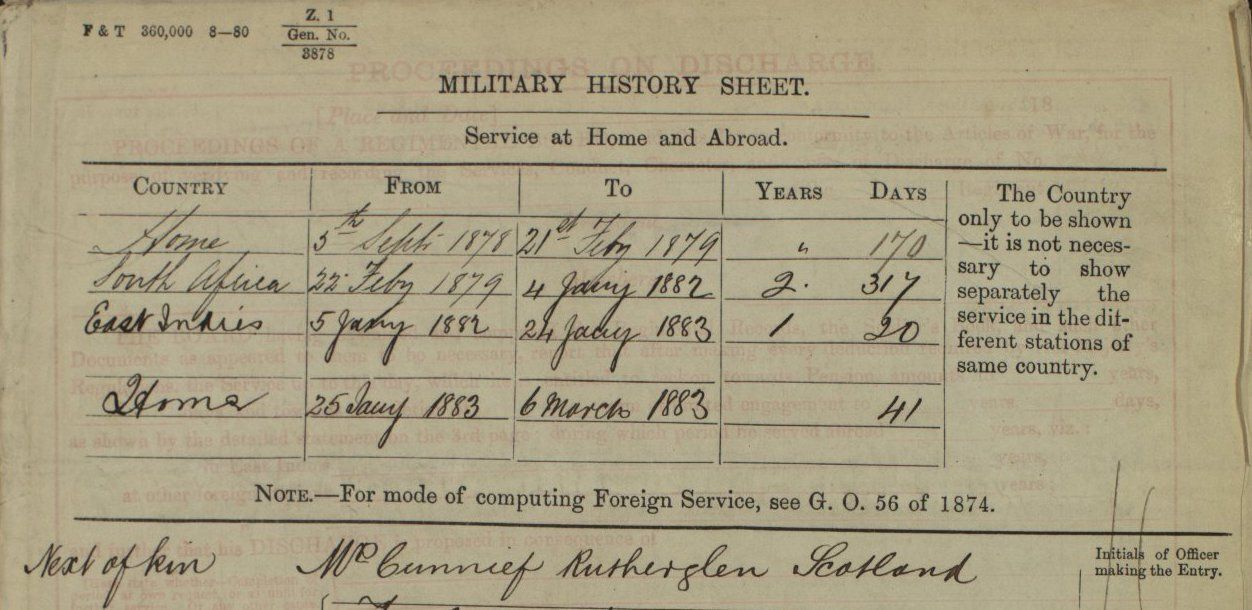 F & T 360,000 8—80
Z. 1
Gen. No.
3878
PROCEEDINGS ON DISCHARGE
MILITARY HISTORY SHEET.
Service at Home and Abroad.
COUNTRY FROM TO YEARS DAYS
Home 5th Sept. 1878 21st Feby 1879 " 170
South Africa 22 Feby 1879 4 Jany 1882 2. 317
East Indies 5 Jany 1882 24 Jany 1883 1 20
Home 25 Jany 1883 6 March 1883 41
The Country
only to be shown
—it is not neces-
sary to show
separately the
service in the dif-
ferent stations of
same country.
NOTE.—For mode of computing Foreign Service, see G. O. 56 of 1874.
Next of kin Mr Cunnief Rutherglen Scotland
Initials of Officer
making the Entry.